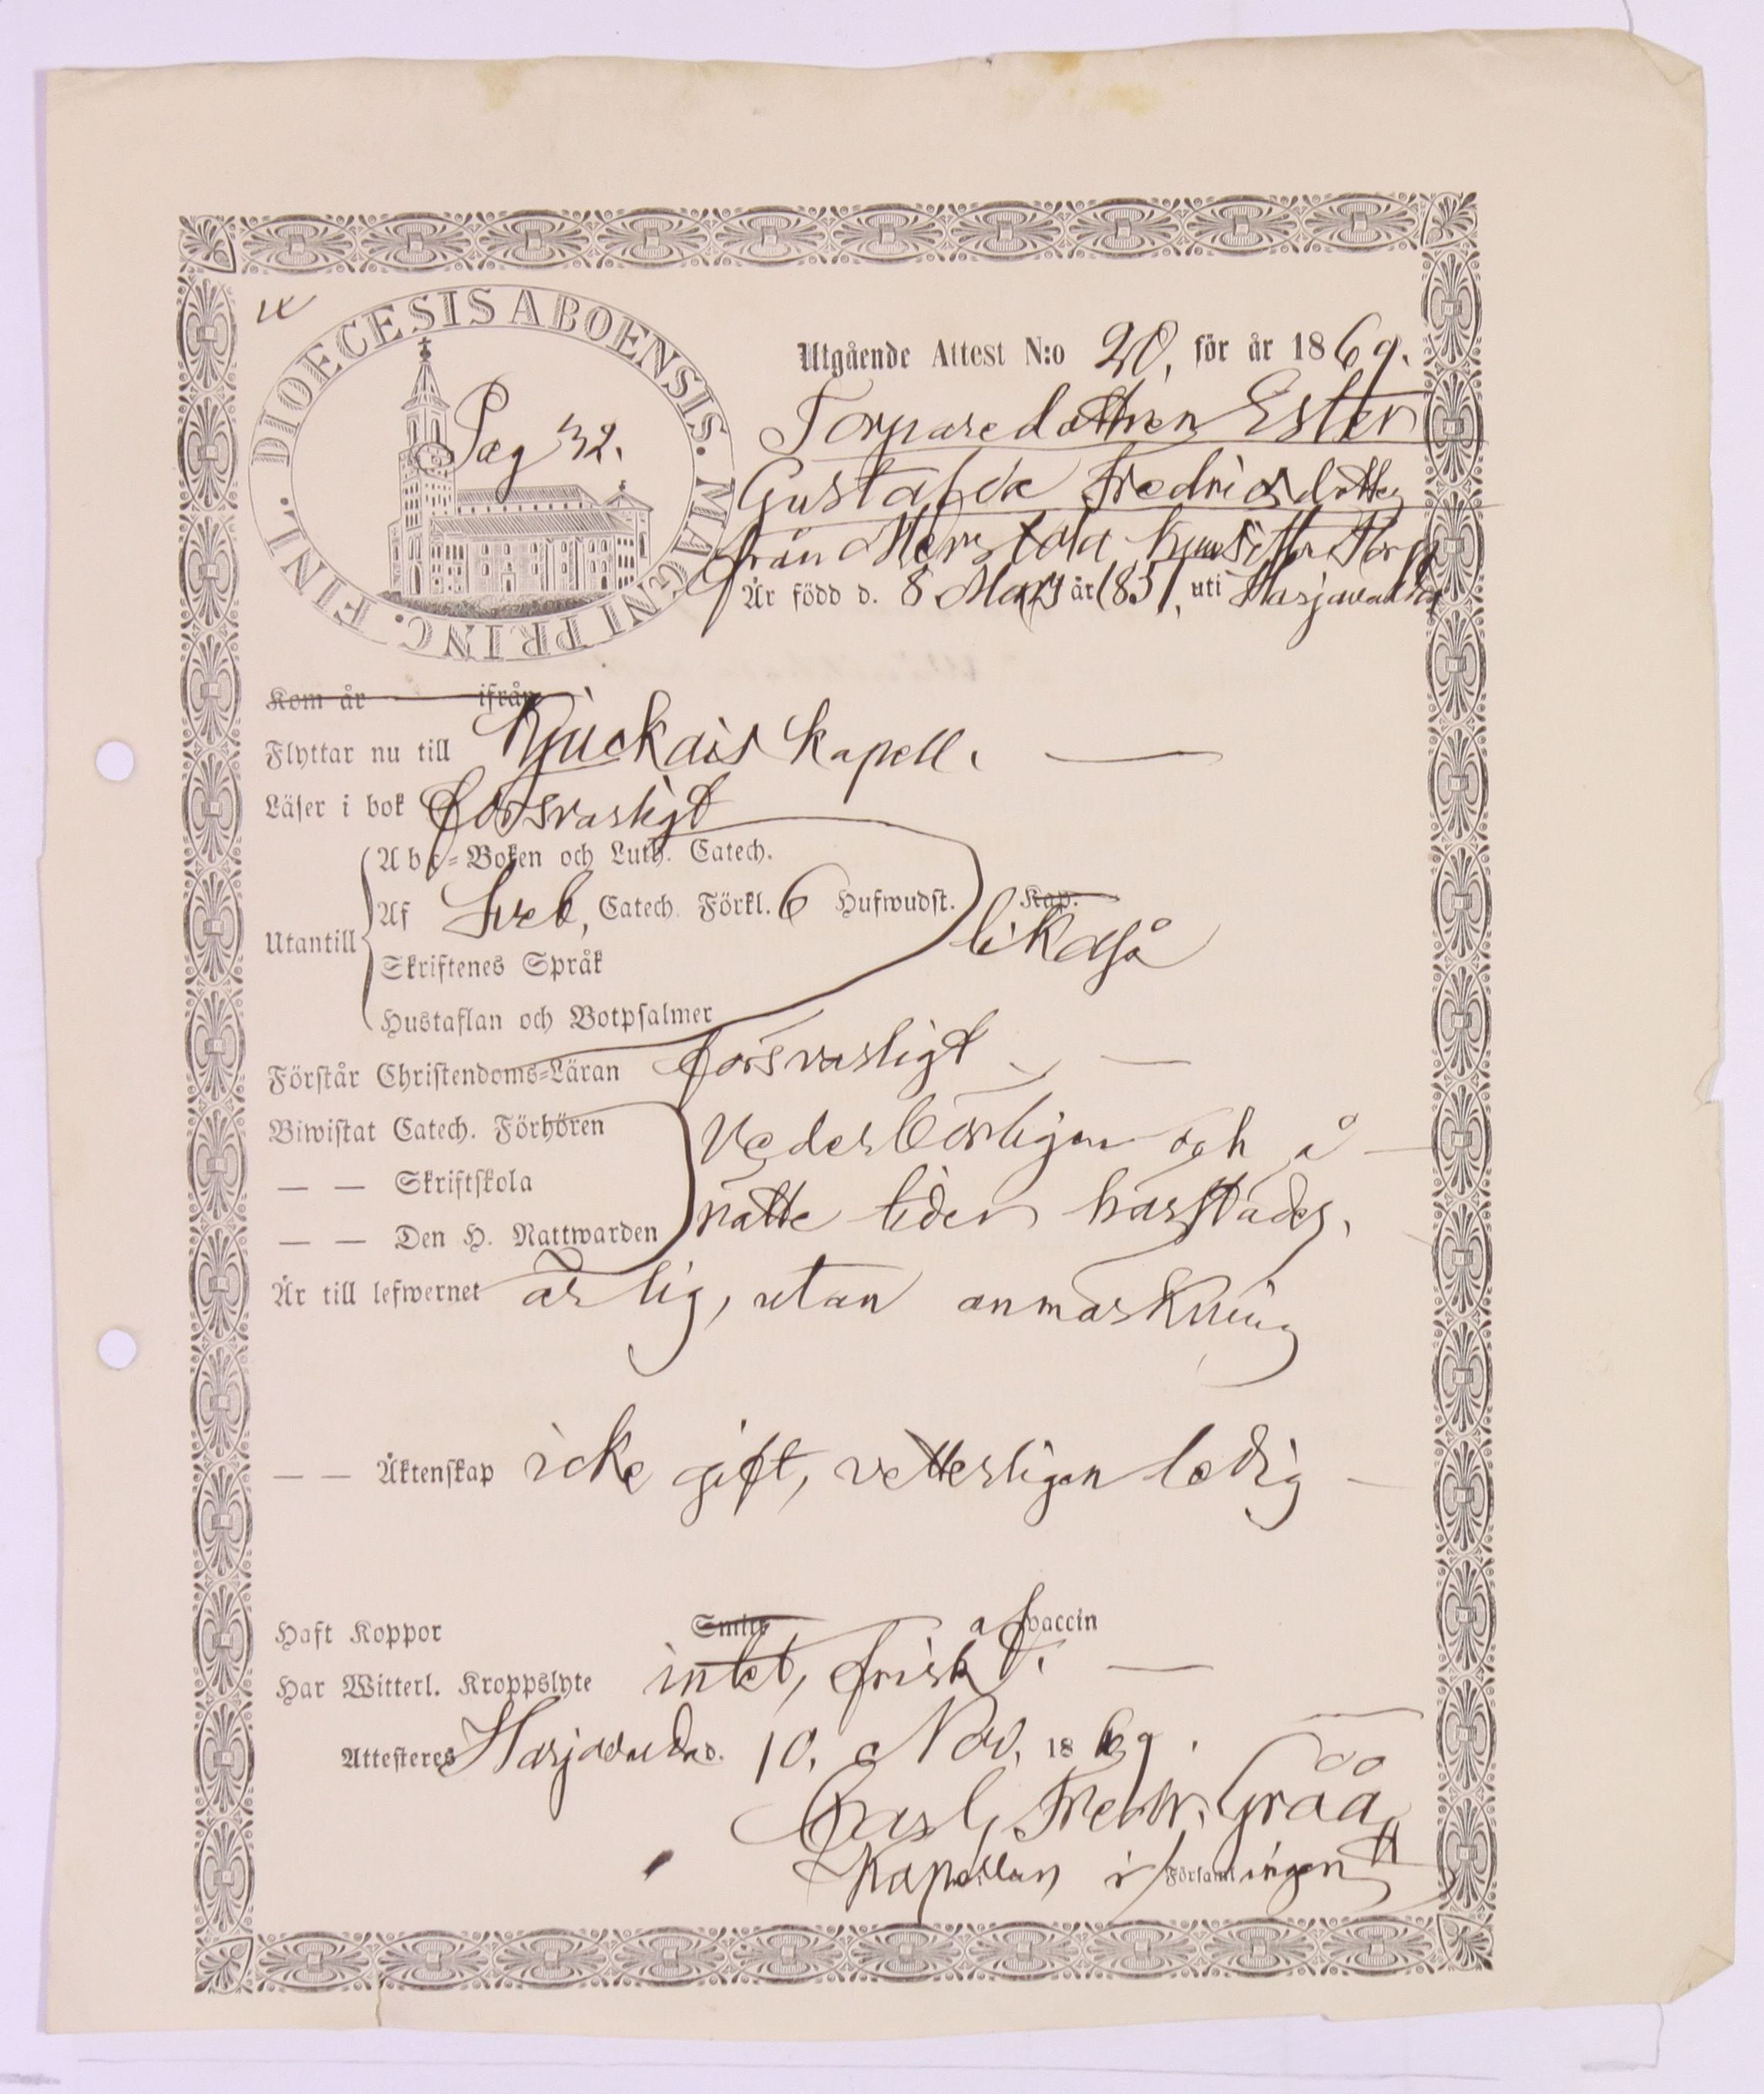 DIOECESIS ABOENSIS. MAGNI PRINC. FINL.
Pag 32.
Utgående Attest N:o 20, för år 1869.
Torparedottren Ester
Gustafva Fredricsdotter
från Merstola
Är född d. 8 Mars år 1851, uti Harjavalda
Kom år ifrån
Flyttar nu till Kjuckais kapell.
Läser i bok försvarligt
Utantill
Abc-Boken och Luth. Catech.
Af Sveb, Catech. Förkl. 6 Hufwudst. Kap.
likaså
Skriftenes Språk
Hustaflan och Botpsalmer
Förstår Christendoms-Läran försvarligt
Biwistat Catech. Förhören vederbörligen och å
— — Skriftskola
— — Den H. Nattwarden rätte tider härstädes.
Är till lefwernet ärlig, utan anmärkning
— — Äktenskap icke gift, vetterligen ledig
Haft Koppor Smitt af vaccin
Har Witterl. Kroppslyte intet, frisk.
Attesteres Harjavalda d. 10. Nov. 1869.
Carl Fredr. Gråå
Kapellan i Församlingen